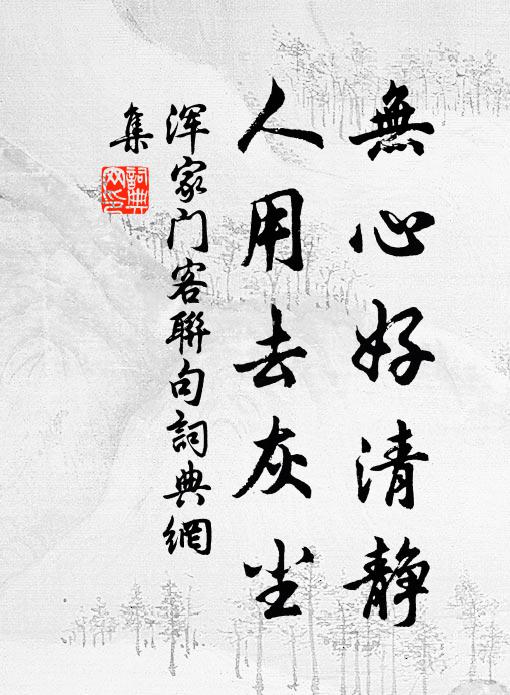 無心好清静
人用去灰尘
浑家门客聯句詞典網
集
詞典网印